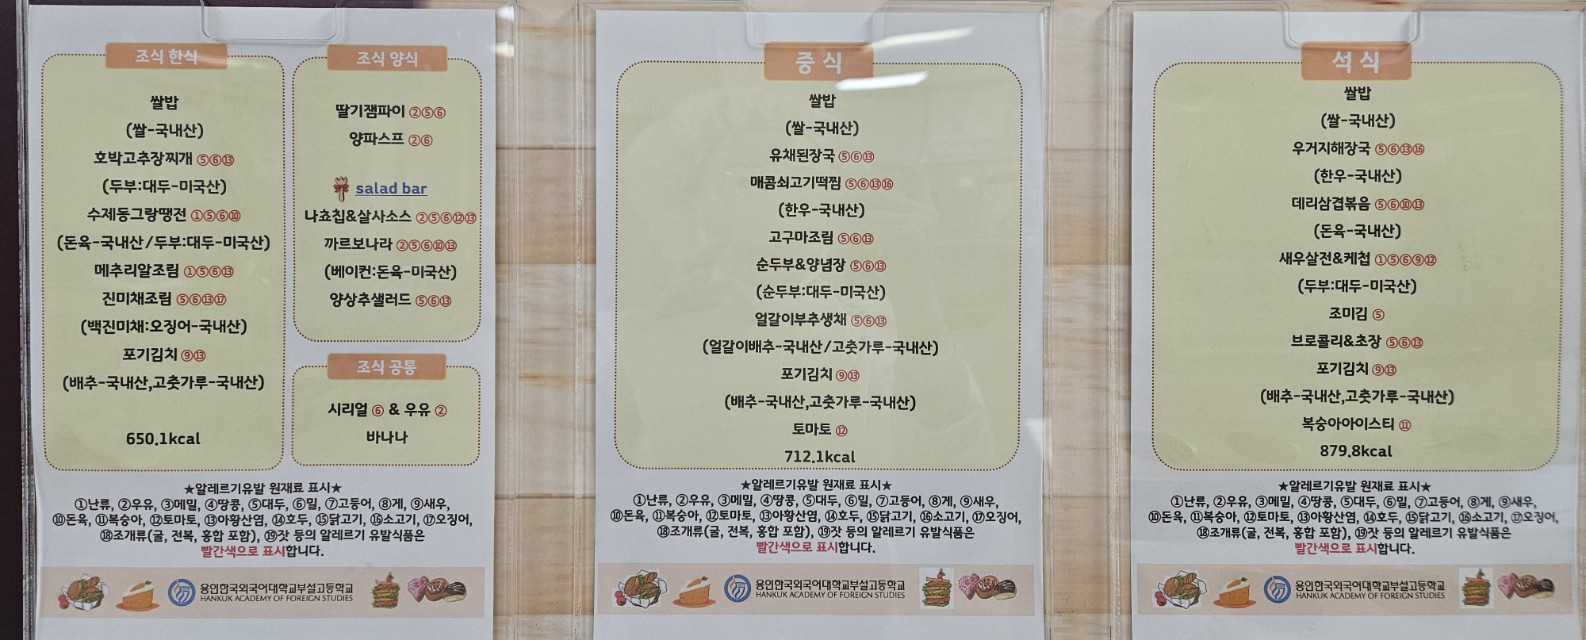 조식 한식
쌀밥
(쌀-국내산)
호박고추장찌개 ⑤⑥⑬
(두부:대두-미국산)
수제동그랑땡전 ①⑤⑥⑩
(돈육-국내산/두부:대두-미국산)
메추리알조림 ①⑤⑥⑬
진미채조림 ⑤⑥⑬⑰
(백진미채:오징어-국내산)
포기김치 ⑨⑬
(배추-국내산,고춧가루-국내산)
650.1kcal
조식 양식
딸기잼파이 ②⑤⑥
양파스프 ②⑥
salad bar
나쵸칩&살사소스 ②⑤⑥⑫⑬
까르보나라 ②⑤⑥⑩⑬
(베이컨:돈육-미국산)
양상추샐러드 ⑤⑥⑬
조식 공통
시리얼 ⑥ & 우유 ②
바나나
★알레르기유발 원재료 표시★
①난류, ②우유, ③메밀, ④땅콩, ⑤대두, ⑥밀, ⑦고등어, ⑧게, ⑨새우,
⑩돈육, ⑪복숭아, ⑫토마토, ⑬아황산염, ⑭호두, ⑮닭고기, ⑯소고기, ⑰오징어,
⑱조개류(굴, 전복, 홍합 포함), ⑲잣 등의 알레르기 유발식품은
빨간색으로 표시합니다.
용인한국외국어대학교부설고등학교
HANKUK ACADEMY OF FOREIGN STUDIES
중 식
쌀밥
(쌀-국내산)
유채된장국 ⑤⑥⑬
매콤쇠고기떡찜 ⑤⑥⑬⑯
(한우-국내산)
고구마조림 ⑤⑥⑬
순두부&양념장 ⑤⑥⑬
(순두부:대두-미국산)
얼갈이부추생채 ⑤⑥⑬
(얼갈이배추-국내산/고춧가루-국내산)
포기김치 ⑨⑬
(배추-국내산,고춧가루-국내산)
토마토 ⑫
712.1kcal
★알레르기유발 원재료 표시★
①난류, ②우유, ③메밀, ④땅콩, ⑤대두, ⑥밀, ⑦고등어, ⑧게, ⑨새우,
⑩돈육, ⑪복숭아, ⑫토마토, ⑬아황산염, ⑭호두, ⑮닭고기, ⑯소고기, ⑰오징어,
⑱조개류(굴, 전복, 홍합 포함), ⑲잣 등의 알레르기 유발식품은
빨간색으로 표시합니다.
용인한국외국어대학교부설고등학교
HANKUK ACADEMY OF FOREIGN STUDIES
석 식
쌀밥
(쌀-국내산)
우거지해장국 ⑤⑥⑬⑯
(한우-국내산)
데리삼겹볶음 ⑤⑥⑩⑬
(돈육-국내산)
새우살전&케첩 ①⑤⑥⑨⑫
(두부:대두-미국산)
조미김 ⑤
브로콜리&초장 ⑤⑥⑬
포기김치 ⑨⑬
(배추-국내산,고춧가루-국내산)
복숭아아이스티 ⑪
879.8kcal
★알레르기유발 원재료 표시★
①난류, ②우유, ③메밀, ④땅콩, ⑤대두, ⑥밀, ⑦고등어, ⑧게, ⑨새우,
⑩돈육, ⑪복숭아, ⑫토마토, ⑬아황산염, ⑭호두, ⑮닭고기, ⑯소고기, ⑰오징어,
⑱조개류(굴, 전복, 홍합 포함), ⑲잣 등의 알레르기 유발식품은
빨간색으로 표시합니다.
용인한국외국어대학교부설고등학교
HANKUK ACADEMY OF FOREIGN STUDIES